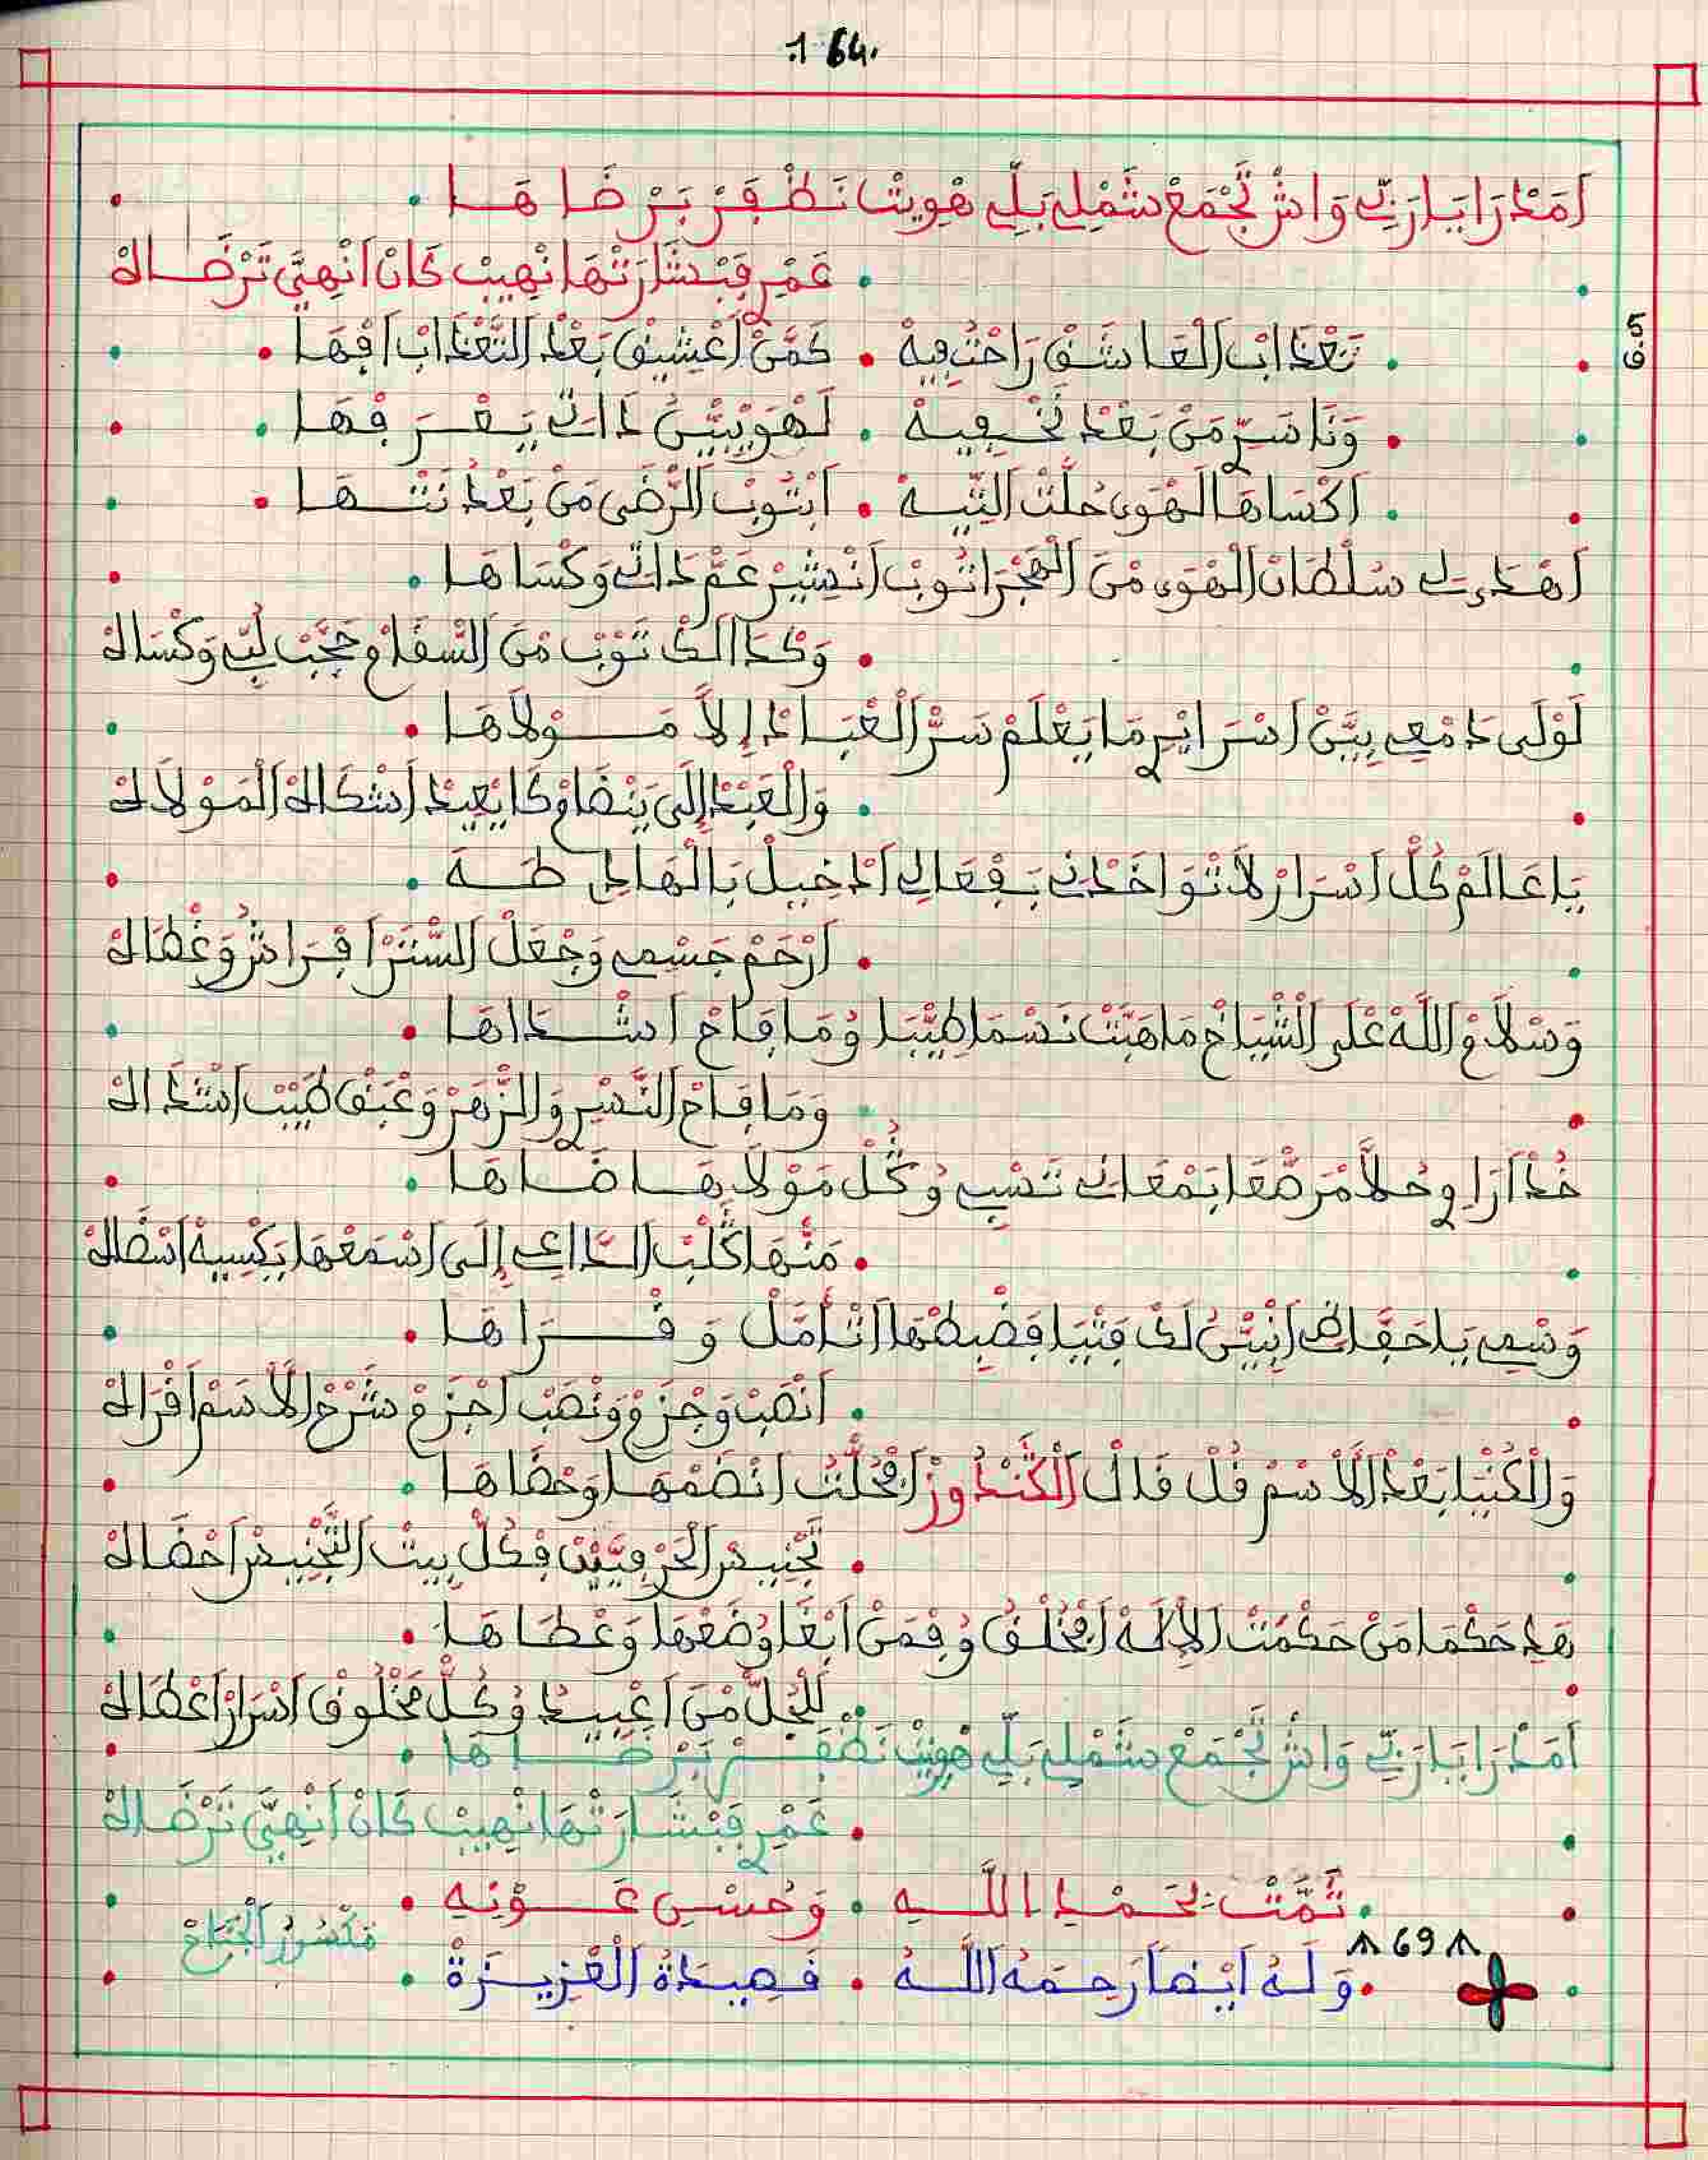 .164.
اَمَدْرَا يَا رَبِّي وَاشْ تَجْمَعْ شَمْلِي بَلِّي هْوِيتْ نَظْفَرْ بَرْضَاهَا
عَمْرِي فَبْشَارَتْهَا نْهِيبْ كَانْ اَنْهِيَّ تَرْضَاكْ
ق5
تَعْذَابْ الْعَاشَقْ رَاحْتُ فِيهْ • كَمَّنْ اَعْشِيقْ بَعْدْ التَّعْذَابْ
وَنَا سَرِّي مَنْ بَعْدْ نَخْفِيهْ • لَهْوَى بِيَّنْ ذَاتِي يَعْرَفْهَا
اَكْسَاهَا الْهْوَى حُلَّتْ التِّيهْ • اَبْتُوبْ الرْضَى مَنْ بَعْدْ نَنْهَا
اَهْدَى لِي سُلْطَانْ الْهْوَى مْنَ الْهْجَرْ اتُوبْ اَنْصِيرْ عَمْ ذَاتِي وَكْسَاهَا
وَكْدَالَكْ تَوْبْ مْنَ السْقَامْ حْجَبْ لُبِّي وَكْسَاكْ
لَوْلَى دَمْعِي بِيَّنْ اَسْرَايْرِي مَا يَعْلَمْ سَرّْ الْعْبَادْ إِلاَّ مَوْلاَهَا
وَالْعَبْدْ إِلَى يَنْضَامْ كَا يْعِيدْ اَشْكَاهْ الْمَوْلاَكْ
يَا عَالَمْ كُلْ اَسْرَارْ لاَ تْوَاخَدْنِي بَفْعَالِي اَدْخِيلْ بَالْهَادِي طَهَ
اَرْحَمْ جَسْمِي وَجْعَلْ السْتَرْ اَفْرَاشُ وَغْطَاكْ
وَسْلاَمْ اللَّهْ عْلَى الْشْيَاخْ مَا هَبَّتْ نَسْمَا طِيَّبَا وُمَا فَاحْ اَشْدَاهَا
وَمَا فَاحْ النَّسْرِي وَالزْهَرْ وَعْبَقْ طِيبْ اَشْذَاكْ
خُذْ اَرَاوِي حُلاَّ مْرَصّْعَا بَمْعَانِي تَسْبِي وُكُلْ مَوْلاَهَا ضَاهَا
مَنْهَا كَلْبْ الدَّاعِي إِلَى اَسْمَعْهَا
وَسْمِي يَا حَفَّاظْ اَنْبِيَّنْ لَكْ فَتْيَا فَضْبِطْهَا اَتْأَمَلْ وَقْرَاهَا
اَنْصَبْ وَجْزَمْ وَنْصَبْ اَجْزَمْ شَرْحْ الاَّسَمْ اَقْرَاكْ
وَالْكُنْيَا بَعْدْ الاَّسْمْ قُلْ قَالْ الْكَنْدُوزْ اَفْحُلَّتُ اَنْضَمْهَا وَحْضَاهَا
تَجْنِيسْ الْحَرْفِيَّنْ فْكُلْ بِيتْ التَّجْنِيسْ اَحْضَاكْ
هَدِ حَكْمَا مَنْ حَكْمَتْ الإِلَهْ اَفْخَلْقُ وُفْمَنْ اَبْغَا وُضَعْهَا وَعْطَاهَا
لَلْجُلّْ مْنَ اَعْبِيدُ وُكُلْ مَخْلُوقْ اَسْرَارْ اَعْطَاكْ
اَمَدْرَا يَا رَبِّي وَاشْ تَجْمَعْ شَمْلِي بَلِّي هْوِيتْ نَظْفَرْ بَرْضَاهَا
عَمْرِي فَبْشَارَتْهَا نْهِيبْ كَانْ اَنْهِيَّ تَرْضَاكْ
تَمَّتْ بِحَمْدِ اللَّهِ • وَحُسْنِ عَوْنِهِ
مَكْسُورْ الْجْنَاحْ
69
وَلَهُ اَيْضاً رَحِمَهُ اللَّهُ • قَصِيدَةُ الْعْزِيزَةْ